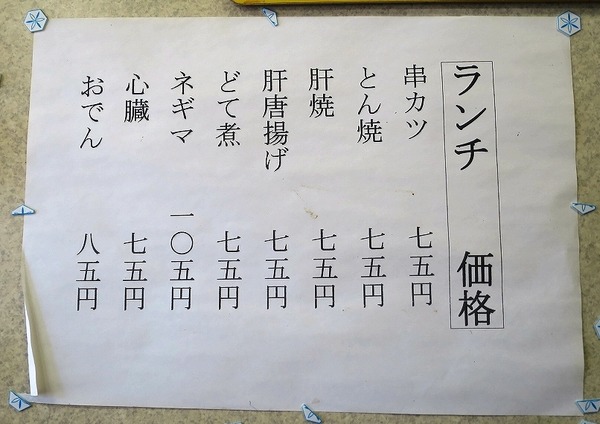 ランチ 価格
串カツ 七五円
とん焼 七五円
肝焼 七五円
肝唐揚げ 七五円
どて煮 七五円
ネギマ 一〇五円
心臓 七五円
おでん 八五円